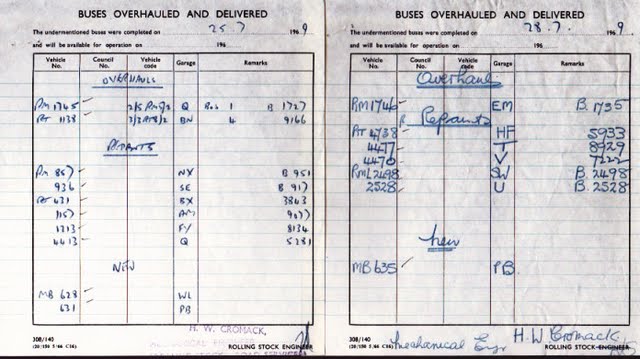 BUSES OVERHAULED AND DELIVERED
The undermentioned buses were completed on 25.7 1969
and will be available for operation on 196
Vehicle No. Council No. Vehicle code Garage Remarks
OVERHAULS
RM 1745 Q 1 B 1727
RT 1138 BN 4 9166
REPAINTS
RM 867 NX B 951
936 SE B 917
RT 431 BX 3843
AM
1213 FY 8134
4413 Q 5281
NEW
MB 628 WL
631 PB
H. W. CROMACK,
308/140
ROLLING STOCK ENGINEER
BUSES OVERHAULED AND DELIVERED
The undermentioned buses were completed on 28.7. 1969
and will be available for operation on 196
Vehicle No. Council No. Vehicle code Garage Remarks
Overhauls
RM 1746 EM B.1735
Repaints
RT 4738 HF 5933
4477 T 8929
4470 V
RML 2498 SW B.2498
2528 U B.2528
New
MB 635 PB
Mechanical Engr H.W Cromack
308/140
ROLLING STOCK ENGINEER